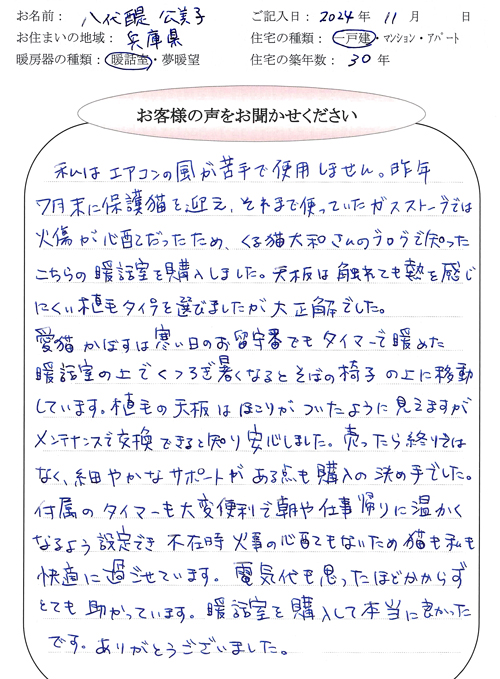 お名前： 八代醍 公美子 ご記入日： 2024年 11月 日
お住まいの地域： 兵庫県 住宅の種類：一戸建・マンション・アパート
暖房器の種類：暖話室・夢暖望 住宅の築年数：30年
お客様の声をお聞かせください
私はエアコンの風が苦手で使用しません。昨年
7月末に保護猫を迎え、それまで使っていたガスストーブでは
火傷が心配だったため、くる猫大和さんのブログで知った
こちらの暖話室を購入しました。天板は触れても熱を感じ
にくい植毛タイプを選びましたが大正解でした。
愛猫かぼすは寒い日のお留守番でもタイマーで暖めた
暖話室の上でくつろぎ暑くなるとそばの椅子の上に移動
しています。植毛の天板はほこりがついたように見えますが
メンテナンスで交換できると知り安心しました。売ったら終りでは
なく、細やかなサポートがある点も購入の決め手でした。
付属のタイマーも大変便利で朝や仕事帰りに温かく
なるよう設定でき不在時火事の心配もないため猫も私も
快適に過ごせています。電気代も思ったほどかからず
とても助かっています。暖話室を購入して本当に良かった
です。ありがとうございました。